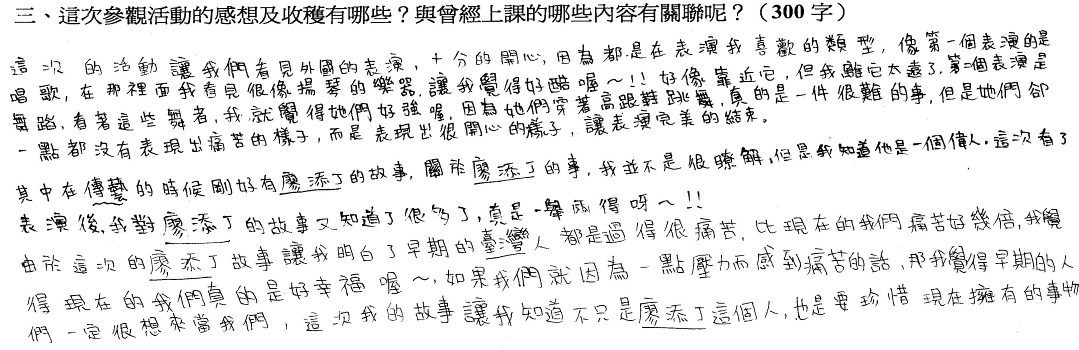 三、這次參觀活動的感想及收穫有哪些？與曾經上課的哪些內容有關聯呢？（300 字）
這次的活動讓我們看見外國的表演，十分的開心，因為都是在表演我喜歡的類型，像第一個表演的是
唱歌，在那裡面我看見很像揚琴的樂器，讓我覺得好酷喔～!! 好像靠近它，但我離它太遠了。第二個表演是
舞蹈，看著這些舞者，我就覺得她們好強喔，因為她們穿著高跟鞋跳舞，真的是一件很難的事，但是她們卻
一點都沒有表現出痛苦的樣子，而是表現出很開心的樣子，讓表演完美的結束。
其中在傳藝的時候剛好有廖添丁的故事，關於廖添丁的事，我並不是很瞭解，但是我知道他是一個偉人。這次看了
表演後，我對廖添丁的故事又知道了很多了，真是一舉兩得呀～!!
由於這次的廖添丁故事讓我明白了早期的臺灣人都是過得很痛苦，比現在的我們痛苦好幾倍，我覺
得現在的我們真的是好幸福喔～，如果我們就因為一點壓力而感到痛苦的話，那我覺得早期的人
們一定很想來當我們，這次我的故事讓我知道不只是廖添丁這個人，也是要珍惜現在擁有的事物